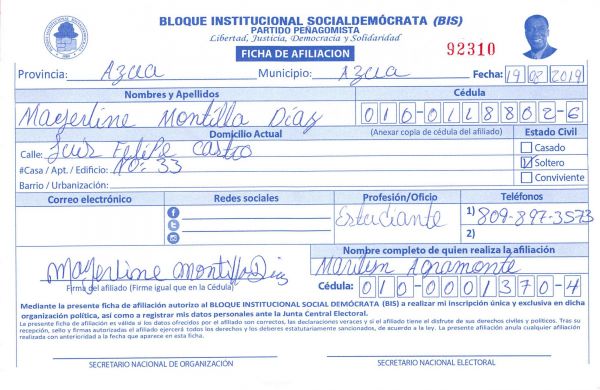 BLOQUE INSTITUCIONAL SOCIALDEMÓCRATA (BIS)
PARTIDO PEÑAGOMISTA
Libertad, Justicia, Democracia y Solidaridad
FICHA DE AFILIACION
92310
Provincia: Azua Municipio: Azua Fecha: 19 02 2019
Nombres y Apellidos Cédula
Mayerline Montilla Díaz 010-0118802-6
Domicilio Actual (Anexar copia de cédula del afiliado) Estado Civil
Calle: Luis Felipe Castro Casado
#Casa / Apt. / Edificio: No: 33 Soltero
Barrio / Urbanización: Conviviente
Correo electrónico Redes sociales Profesión/Oficio Teléfonos
Estudiante 1) 809-897-3573
2)
Nombre completo de quien realiza la afiliación
Mayerline Montilla Díaz Marilyn Agramonte
Firma del afiliado (Firme igual que en la Cédula) Cédula: 010-0001370-4
Mediante la presente ficha de afiliación autorizo al BLOQUE INSTITUCIONAL SOCIAL DEMÓCRATA (BIS) a realizar mi inscripción única y exclusiva en dicha
organización política, así como a registrar mis datos personales ante la Junta Central Electoral.
La presente ficha de afiliación es válida a los datos ofrecidos por el afiliado son correctos, las declaraciones veraces y si el afiliado tiene el disfrute de sus derechos civiles y políticos. Tras su
recepción, sello y firmas autorizadas el afiliado ejercerá todos los derechos y los deberes estatutariamente sancionados, de acuerdo a la ley. La presente afiliación anula cualquier afiliación
realizada con anterioridad a la fecha que aparece en esta ficha.
SECRETARIO NACIONAL DE ORGANIZACIÓN SECRETARIO NACIONAL ELECTORAL